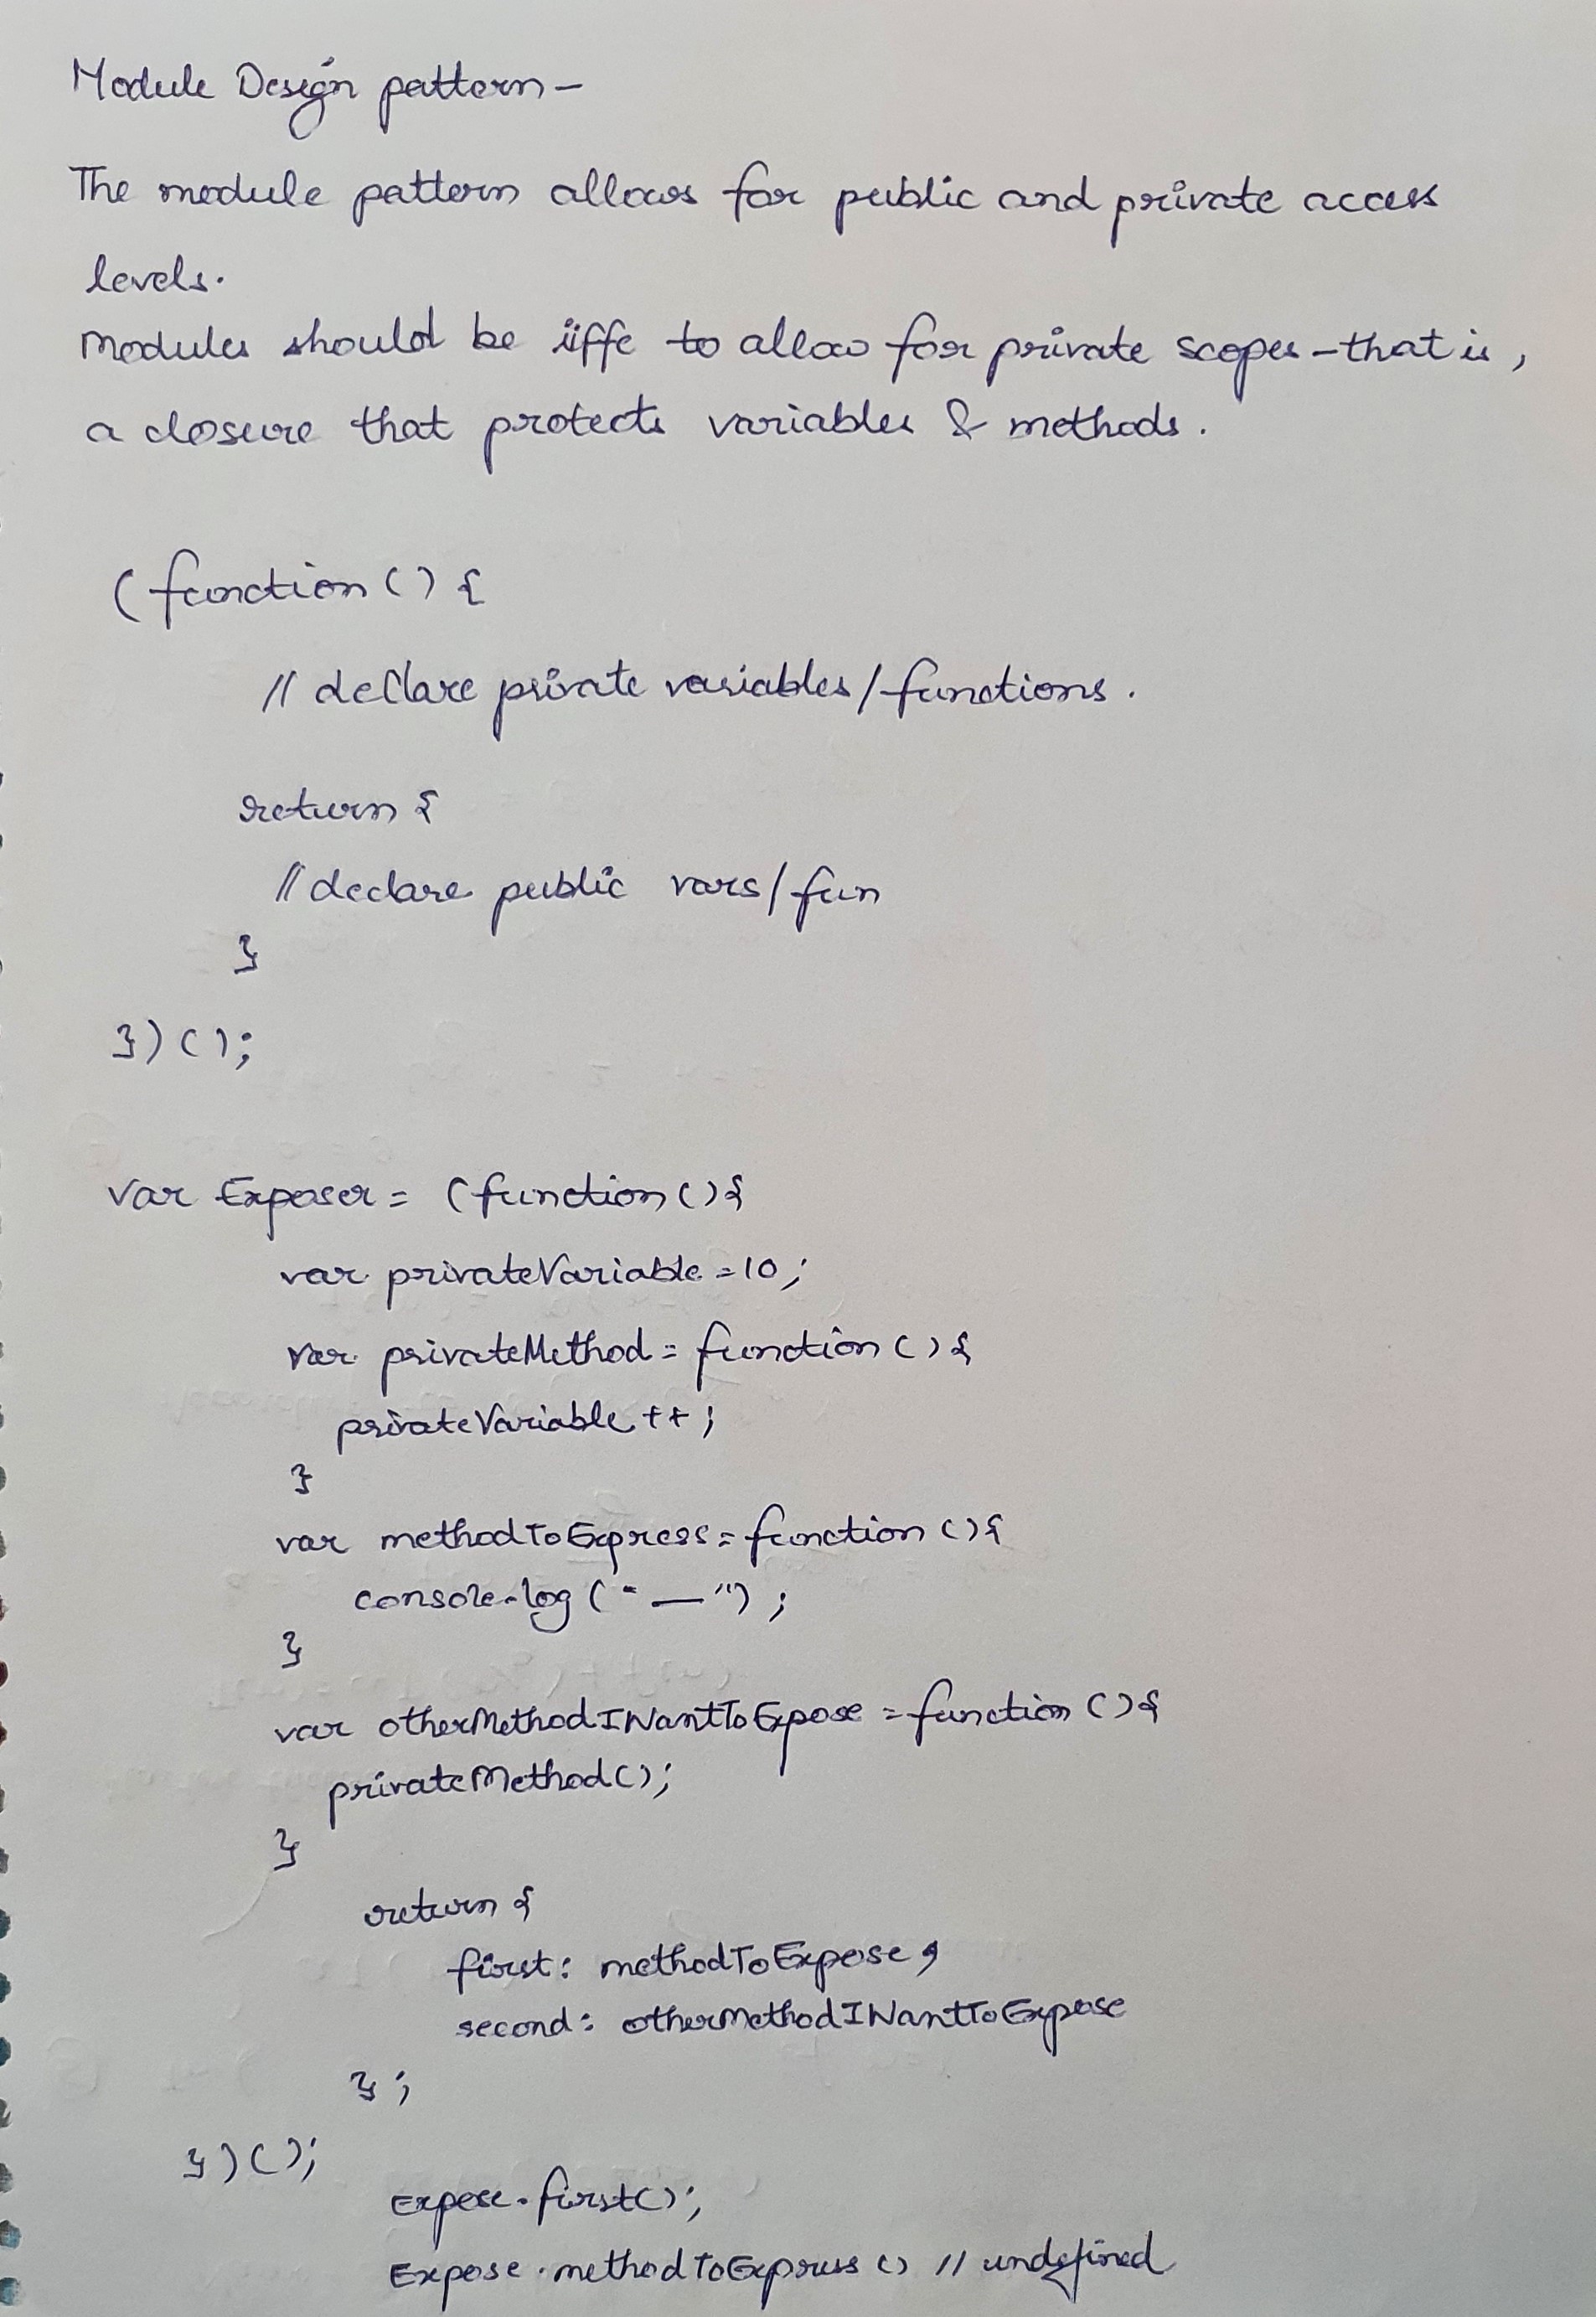 Module Design pattern -
The module pattern allows for public and private access
levels.
Modules should be iiffe to allow for private scopes - that is,
a closure that protects variables & methods.
(function () {
// declare private variables/functions.
return {
// declare public vars/fun
}
})();
var Exposer = (function () {
var privateVariable = 10;
var privateMethod = function () {
privateVariable ++;
}
var methodToExpress = function () {
console.log (" — ");
}
var otherMethodIWantToExpose = function () {
privateMethod();
}
return {
first: methodToExpose,
second: otherMethodIWantToExpose
};
})();
Expose.first();
Expose.methodToExpress () // undefined